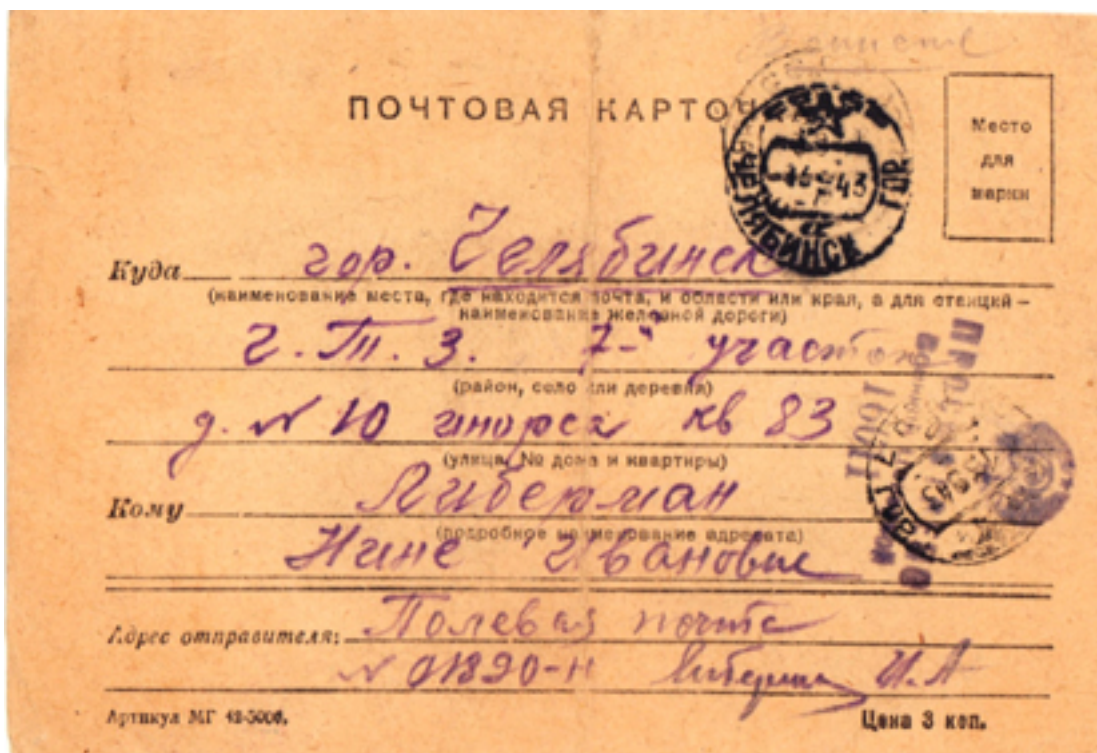 Воинское
ПОЧТОВАЯ КАРТОЧ
Место
для
марки
ЧЕЛЯБИНСК ГОР.
43
Куда гор. Челябинск
(наименование места, где находится почта, и области или края, а для станций –
наименование железной дороги)
г. Т. З. 7-й участок
(район, село или деревня)
д. № 10 кв 83
(улица, № дома и квартиры)
Кому Либерман
(подробное наименование адресата)
Нине Ивановне
Адрес отправителя: Полевая почта
№ 01890-н Либерман И.А
Артикул МГ
Цена 3 коп.